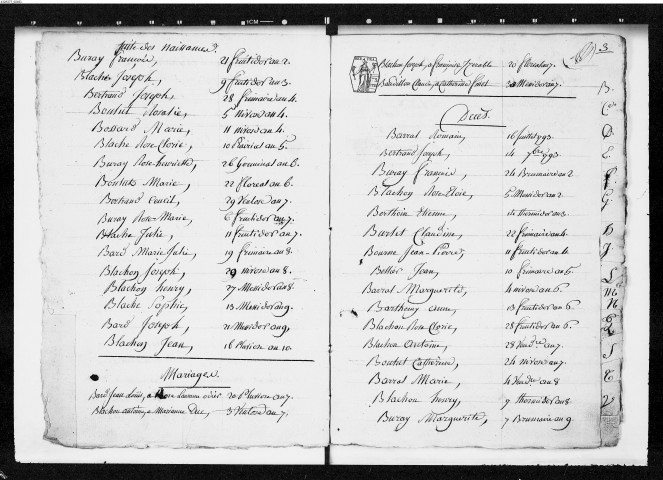 Suite des naissances.
Buray françois, 21 fructidor an 2.
Blache Joseph, 9 fructidor an 3.
Bertrand Joseph, 28 frimaire an 4.
Boutut Rosalie, 5 nivose an 4.
Bossard Marie, 11 nivose an 4.
Blache Rose Clorie, 10 Prairial an 5.
Buray Rose henriette, 26 Germinal an 6.
Boutut Marie, 22 floreal an 6.
Bertrand 29 Ventose an 7.
Buray Rose-Marie, 6 fructidor an 7.
Blache Julie, 11 fructidor an 7.
Bard Marie Julie, 19 frimaire an 8.
Blachon Joseph, 29 nivose an 8.
Blachon henry, 27 Messidor an 8.
Blache Sophie, 13 Messidor an 9.
Bard Joseph, 21 Messidor an 9.
Blachon Jean, 16 Pluviose an 10.
Mariages.
Bard Jean Louis, a Rose 20 Pluviose an 7.
Blachon antoine, a Marianne Duc, 3 Ventose an 7.
3
Blachon Joseph, a françoise 20 floreal an 7.
Claude, a Catherine 30 Messidor an 7.
Décès.
Barral Romain, 16 juillet 1793.
Bertrand Joseph, 14 7bre 1793.
Buray françois, 24 Brumaire an 2.
Blachon Rose Cloie, 5 Messidor an 2.
Berthoin Etienne, 14 thermidor an 3.
Burlet Claudine, 22 frimaire an 4.
Bourne Jean-Pierre, 11 fructidor an 4.
Bellier Jean, 10 frimaire an 5.
Barral Marguerite, 4 nivose an 6.
Barthemy anne, 13 fructidor an 6.
Blachon Rose Clorie, 28 fructidor an 6.
Blachon antoine, 28 Vendre. an 7.
Boutut Catherine, 24 nivose an 7.
Barral Marie, 4 Vendre an 8
Blachon henry, 9 thermidor an 8.
Buray Marguerite, 7 Brumaire an 9.
B
C
D
E
F
G
H
J
L
M
N
P
R
S
T
V